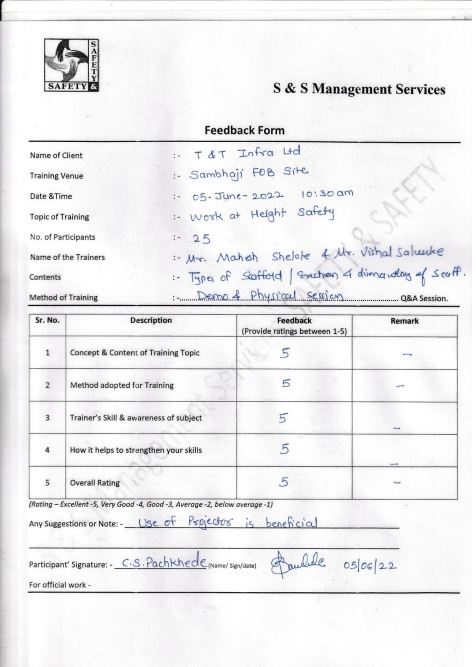 SAFETY & SAFETY
S & S Management Services
Feedback Form
Name of Client :- T & T Infra Ltd
Training Venue :- Sambhaji FOB Site
Date &Time :- 05-June-2022 10:30am
Topic of Training :- Work at Height Safety
No. of Participants :- 25
Name of the Trainers :- Mr. Mahesh Shelote & Mr. Vishal Salunke
Contents :- Types of Scaffold / Erection & dismantling of Scaff.
Method of Training :- Demo & Physical Session Q&A Session.
Sr. No. Description Feedback Remark
(Provide ratings between 1-5)
1 Concept & Content of Training Topic 5 –
2 Method adopted for Training 5 –
3 Trainer's Skill & awareness of subject 5 –
4 How it helps to strengthen your skills 5 –
5 Overall Rating 5 –
(Rating – Excellent -5, Very Good -4, Good -3, Average -2, below average -1)
Any Suggestions or Note: - Use of Projector is beneficial
Participant' Signature: - C.S.Pachkhede (Name/ Sign/date) 05/06/22
For official work -